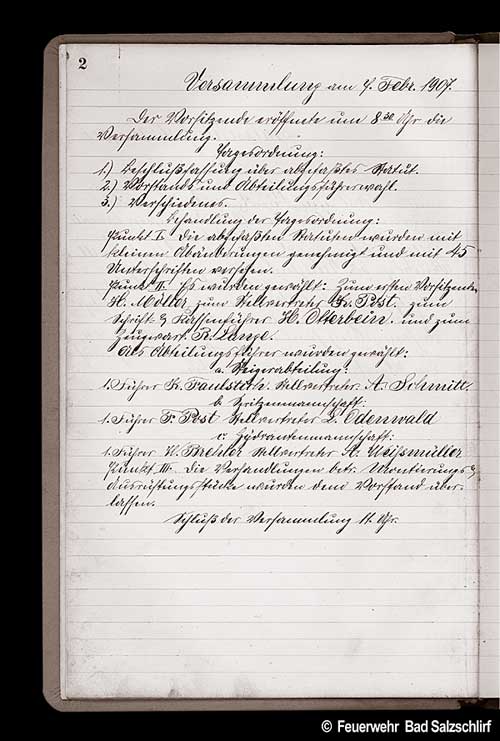 2
Versammlung am 4. Febr. 1907.
Der Vorsitzende eröffnete um 8 30 Uhr die
Versammlung.
Tagesordnung:
1.) Beschlußfassung über abgefaßtes Statut.
2.) Vorstands und Abteilungsführerwahl.
3.) Verschiedenes.
Behandlung der Tagesordnung:
Punkt I. Die abgefaßten Statuten wurden mit
kleinen Abänderungen genehmigt und mit 45
Unterschriften versehen.
Punkt II. Es wurden gewählt: Zum ersten Vorsitzenden
H. Möller, zum Stellvertreter Fr. Post. zum
Schrift & Kassenführer H. Otterbein. und zum
Zeugwart. R. Lange.
Als Abteilungsführer wurden gewählt:
a. Steigerabteilung:
1. Führer K. Faulstich. Stellvertreter A. Schmitt.
b. Spritzenmannschaft:
1. Führer F. Post Stellvertreter L. Odenwald
c. Hydrantenmannschaft:
1. Führer W. Brehler Stellvertreter A. Weissmüller
Punkt III. Die Verhandlungen betr. Uniformierungs &
Ausrüstungsstücke wurden dem Vorstand über-
lassen.
Schluß der Versammlung 11 Uhr.
© Feuerwehr Bad Salzschlirf